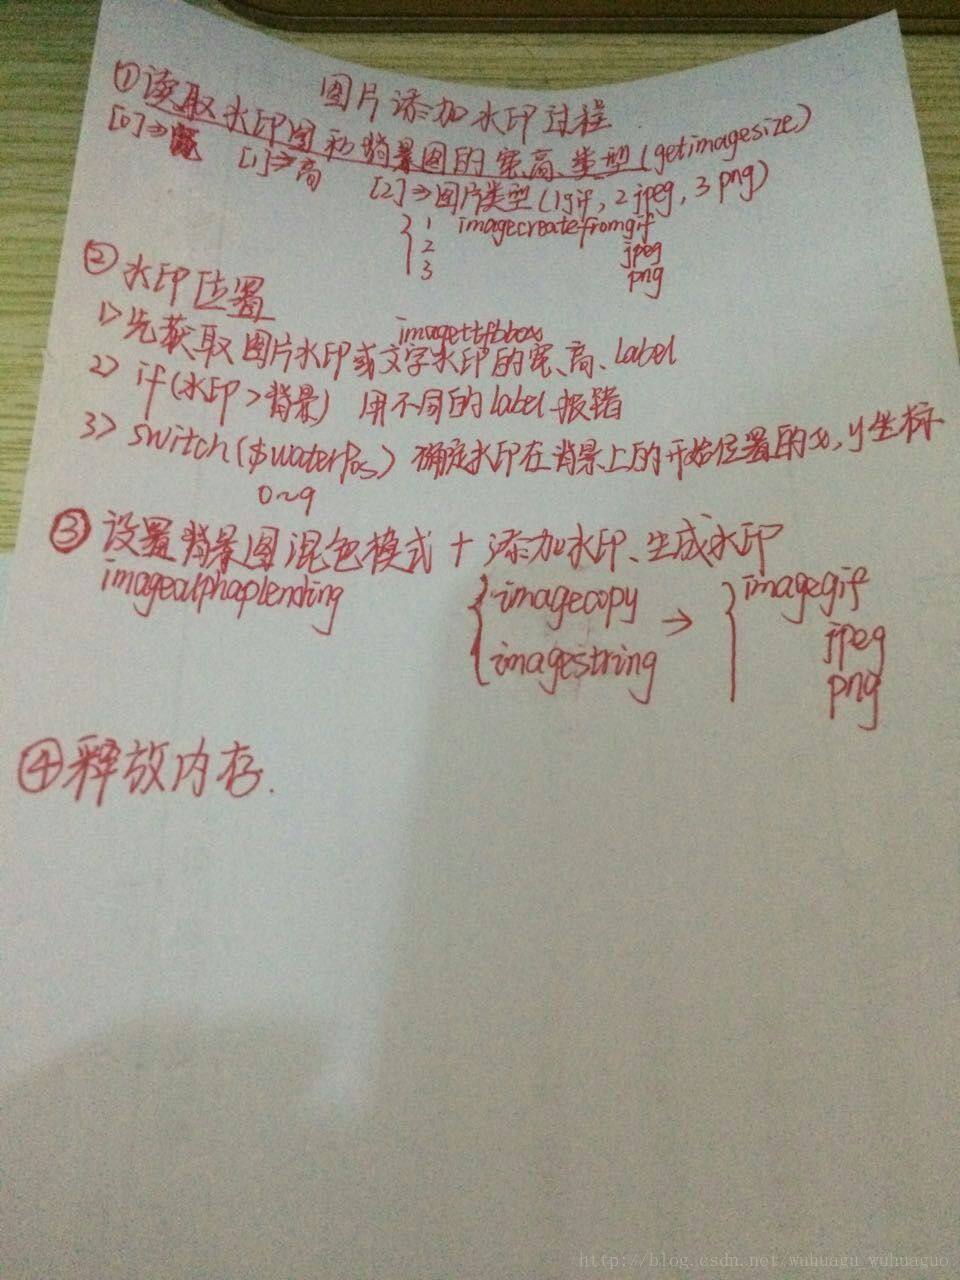 图片添加水印过程
①读取水印图和背景图的宽、高、类型(getimagesize)
[0]⇒宽 [1]⇒高 [2]⇒图片类型(1gif, 2jpeg, 3png)
1 imagecreatefromgif
2 jpeg
3 png
②水印位置
imagettfbbox
1>先获取图片水印或文字水印的宽、高、label
2> if(水印>背景) 用不同的label报错
3> switch($waterPos) 确定水印在背景上的开始位置的x,y坐标
0~9
③设置背景图混色模式+添加水印、生成水印
imagealphaplending
imagecopy → imagegif
imagestring jpeg
png
④释放内存.
http://blog.csdn.net/wuhuagu_wuhuaguo